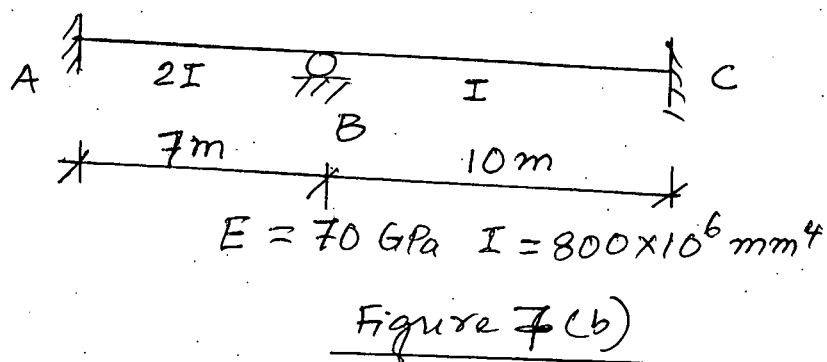 A 2I I C
B
7m 10m
E = 70 GPa I = 800×10⁶ mm⁴
Figure 7 (b)